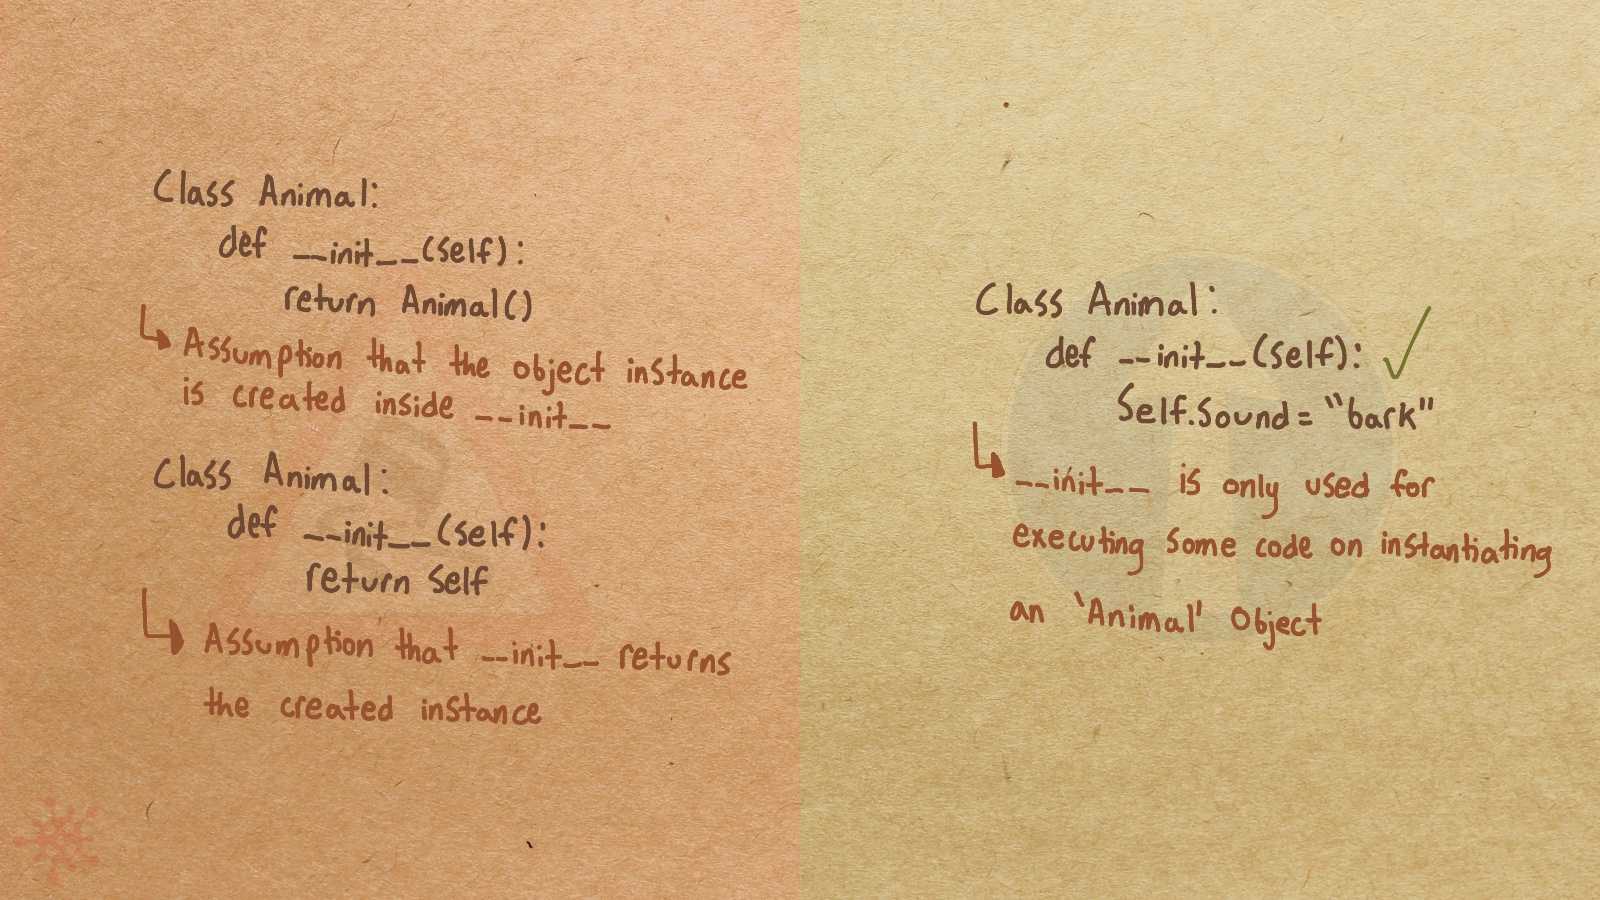 Class Animal:
def __init__(self):
return Animal()
Assumption that the object instance
is created inside __init__
Class Animal:
def __init__(self):
return self
Assumption that __init__ returns
the created instance
Class Animal:
def __init__(self):
Self.Sound = "bark"
__init__ is only used for
executing some code on instantiating
an 'Animal' Object